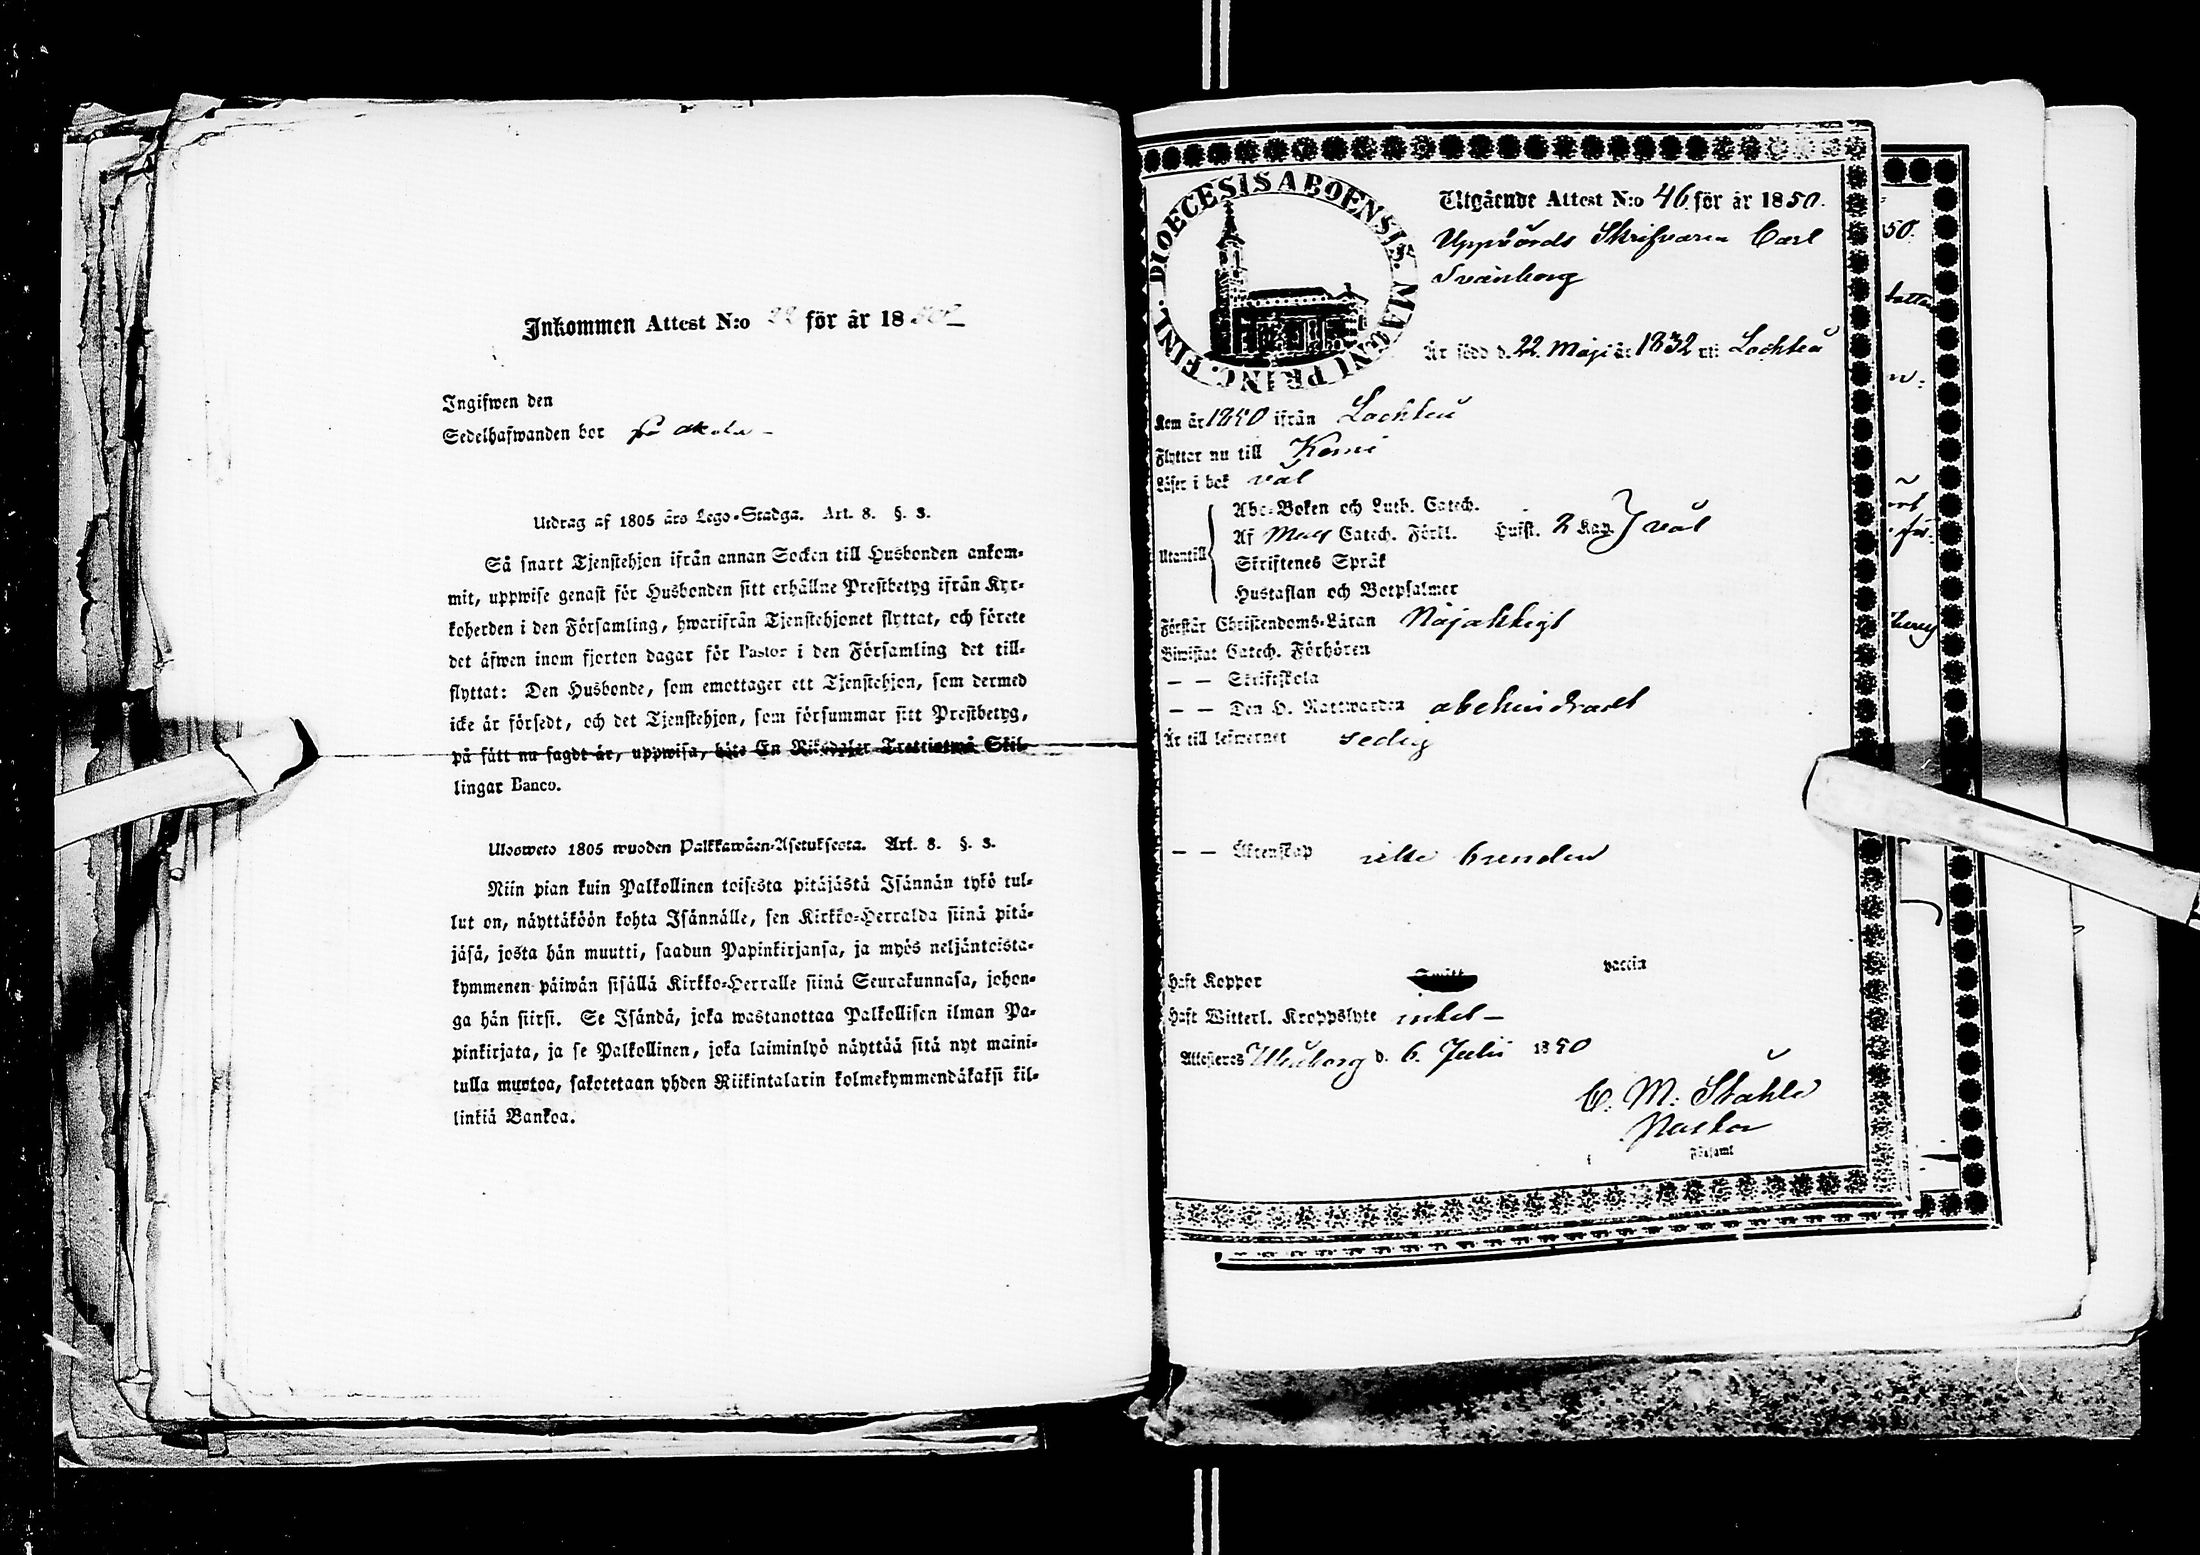 Inkommen Attest N:o 22 för år 18
Ingifwen den
Sedelhafwanden bor på
Utdrag af 1805 års Lego-Stadga. Art. 8. §. 3.
Så snart Tjenstehjon ifrån annan Socken till Husbonden ankom-
mit, uppwise genast för Husbonden sitt erhållne Prestbetyg ifrån Kyr-
koherden i den Församling, hwarifrån Tjenstehjonet flyttat, och förete
det äfwen inom fjorton dagar för Pastor i den Församling det till-
flyttat: Den Husbonde, som emottager ett Tjenstehjon, som dermed
icke är försedt, och det Tjenstehjon, som försummar sitt Prestbetyg,
på sätt nu sagdt är, uppwisa, böte En Riksdaler Trettiotwå Skil-
lingar Banco.
Ulosweto 1805 wuoden Palkkawäen-Asetuksesta. Art. 8. §. 3.
Niin pian kuin Palkollinen toisesta pitäjästä Isännän tykö tul-
lut on, näyttäköön kohta Isännälle, sen Kirkko-Herralda siinä pitä-
jäsä, josta hän muutti, saadun Papinkirjansa, ja myös neljäntoista-
kymmenen päiwän sisällä Kirkko-Herralle siinä Seurakunnasa, johon-
ga hän siirsi. Se Isändä, joka wastanottaa Palkollisen ilman Pa-
pinkirjata, ja se Palkollinen, joka laiminlyö näyttää sitä nyt maini-
tulla muotoa, sakotetaan yhden Riikintalarin kolmekymmendäkaksi kil-
linkiä Bankoa.
DIOECESIS ABOENSIS. MAGNI PRINC. FINL.
Utgående Attest N:o 46 för år 1850.
Uppbörds Skrifvaren Carl
Svanberg
Är född d. 22 Maji år 1832 uti Lochteå
Kom år 1850 ifrån Lochteå
Flyttar nu till Kemi
Läser i bok väl
Utantill
Abc-Boken och Luth. Catech.
Af Catech. Förkl. Hufst. 2 Kap. väl
Skriftenes Språk
Hustaflan och Botpsalmer
Förstår Christendoms-Läran Nöjaktigt
Biwistat Catech. Förhören
— — Skriftskola
— — Den H. Nattwarden obehindradt
Är till lefwernet sedig
— — Äktenskap icke bunden
Haft Koppor vaccin
Haft Witterl. Kroppslyte intet —
Attesteres Uleåborg d. 6. Julii 1850
C. M: Ståhle
Pastor
50.